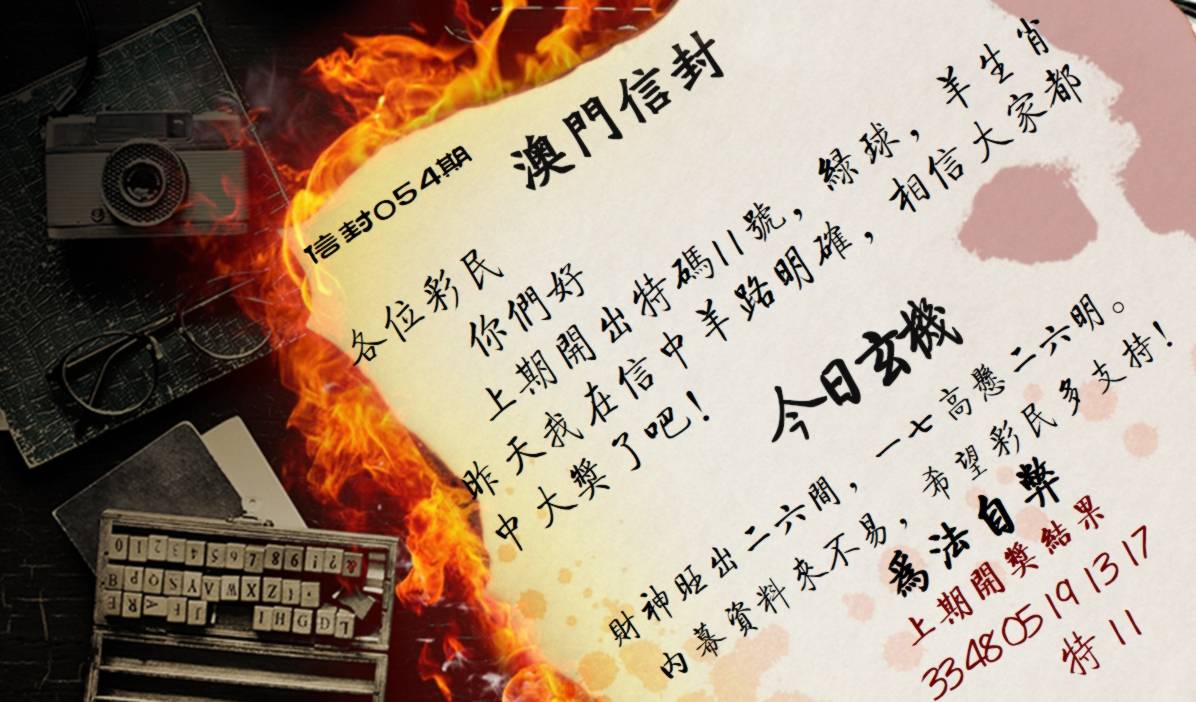 澳門信封
信封054期
各位彩民
你們好
上期開出特碼11號，綠球，羊生肖
昨天我在信中羊路明確，相信大家都
中大獎了吧！
今日玄機
財神旺出二六間，一七高懸二六明。
内幕資料來不易，希望彩民多支持！
爲法自弊
上期開獎結果
33 48 05 19 13 17
特 11